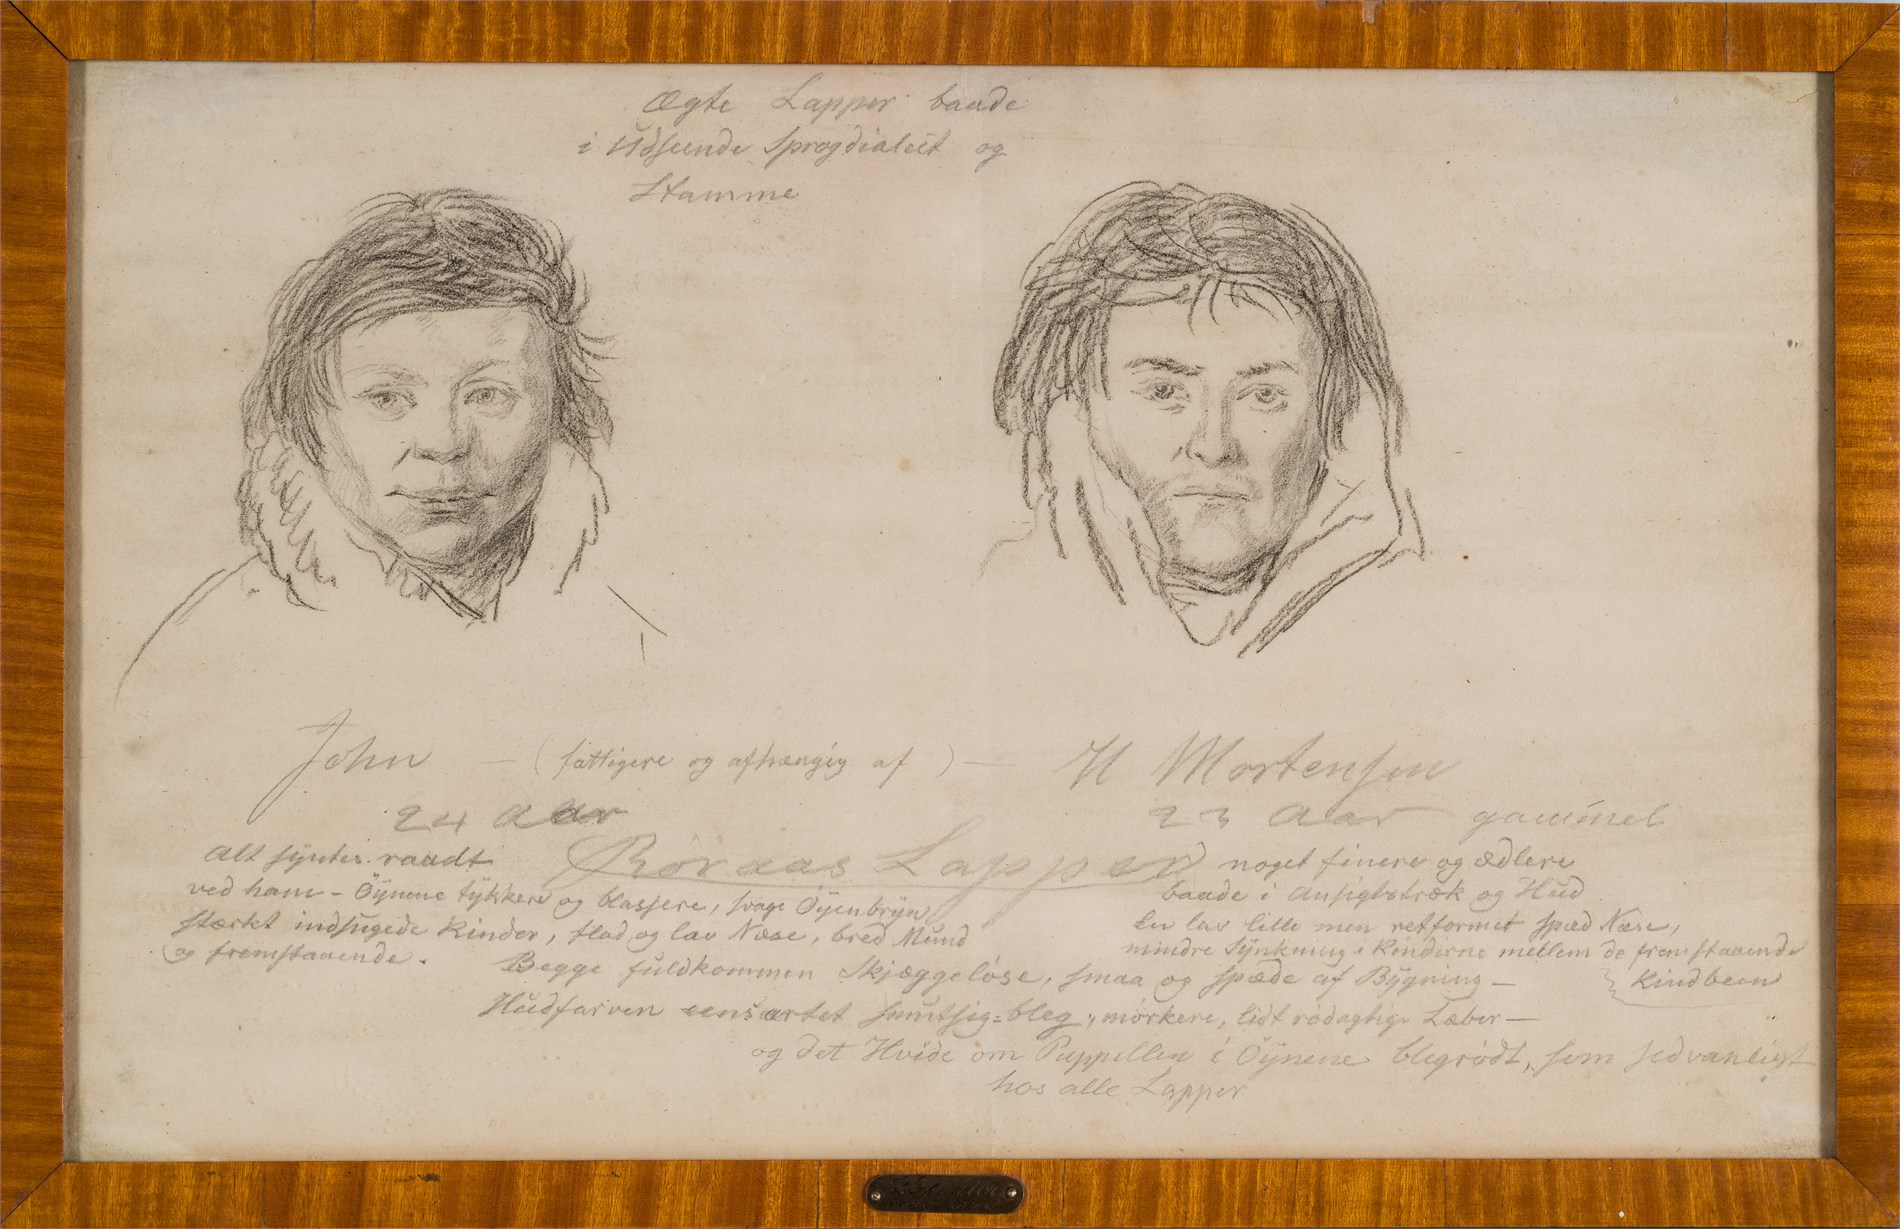 Ægte Lapper baade
i Udseende Sprogdialect og
Stamme
John — (fattigere og afhængig af) — H Mortensen
24 Aar
23 Aar gammel
Roraas Lapper
Alt syntes raadt
ved ham – Öÿnene tÿkkere og blassere, svage Öÿenbrÿn
stærkt indsugede Kinder, flad og lav Næse, bred Mund
og fremstaaende.
noget finere og ædlere
baade i Ansigtstræk og Hud
En lav lille men retformet spæd Næse,
mindre Sÿnkning i Kinderne mellem de fremstaaende
Kindbeen
Begge fuldkommen Skjæggeløse, smaa og spæde af Bÿgning —
Hudfarven eensartet smutsig=bleg, mörkere, lidt rödagtige Læber —
og det Hvide om Puppillen i Öÿnene blegrödt, som sedvanligt
hos alle Lapper